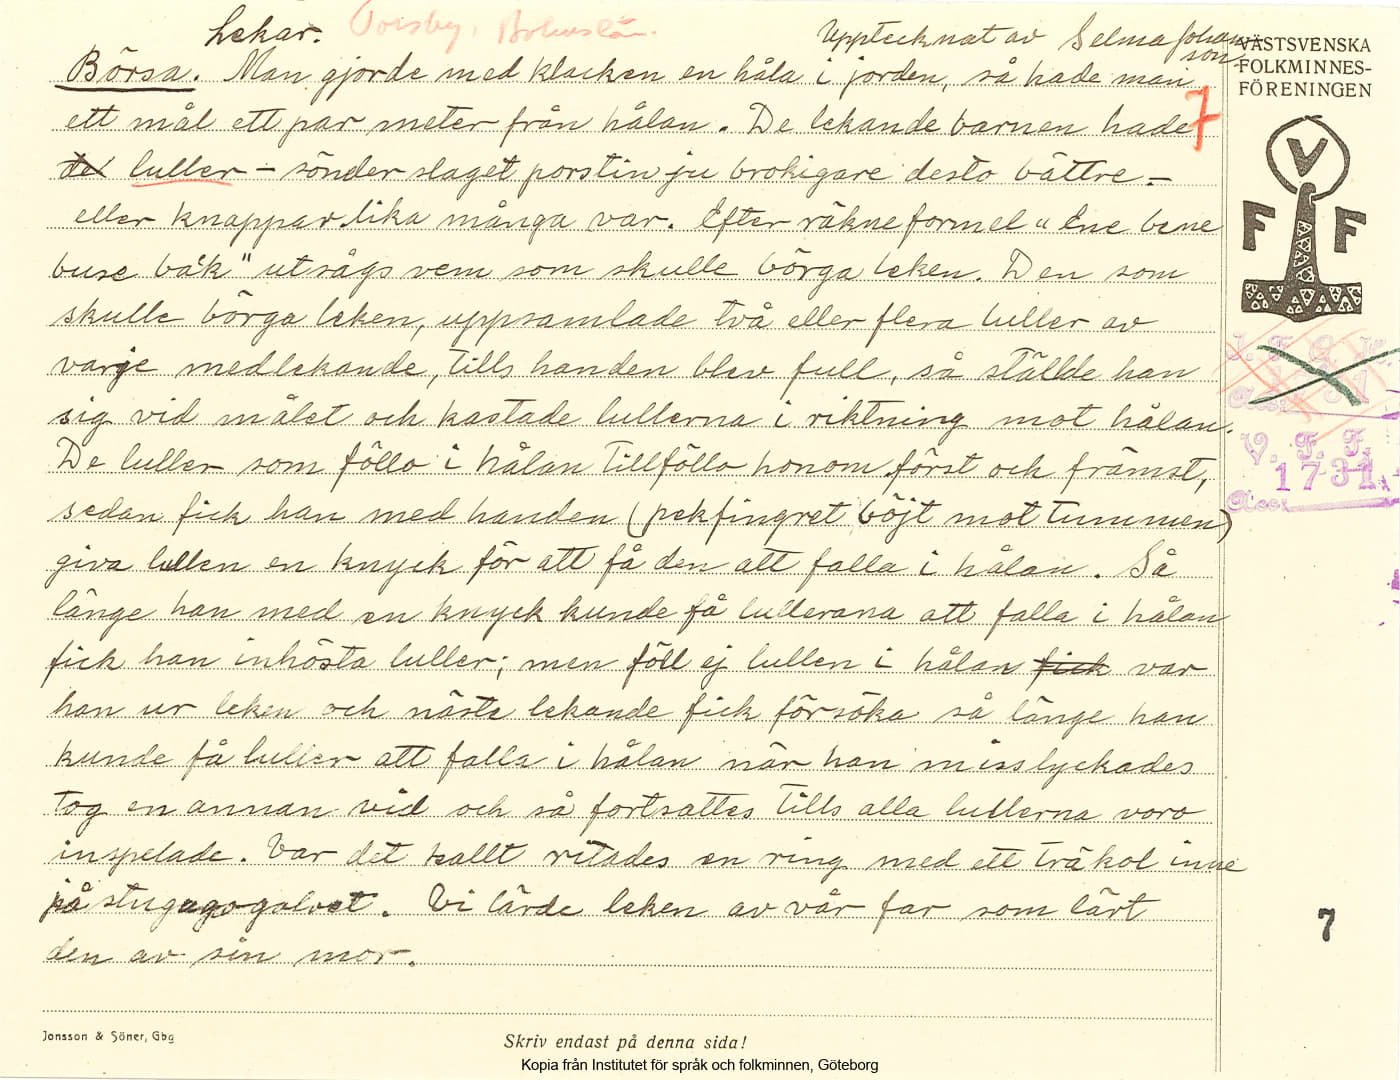 Lekar. Torsby, Bohuslän.
Upptecknat av Selma Johansson
VÄSTSVENSKA
FOLKMINNES-
FÖRENINGEN
Börsa. Man gjorde med klacken en håla i jorden, så hade man
ett mål ett par meter från hålan. De lekande barnen hade
7
luller – sönder slaget porslin ju brokigare desto bättre. –
eller knappar lika många var. Efter räkneformel "Ene bene
buse båk" utsågs vem som skulle börga leken. Den som
skulle börga leken, uppsamlade två eller flera luller av
varje medlekande, tills handen blev full, så ställde han
sig vid målet och kastade lullerna i riktning mot hålan.
De luller som föllo i hålan tillföllo honom först och främst,
sedan fick han med handen (pekfingret böjt mot tummen)
giva lullen en knyck för att få den att falla i hålan. Så
länge han med en knyck kunde få lullerana att falla i hålan
fick han inhösta luller; men föll ej lullen i hålan fick var
han ur leken och nästa lekande fick försöka så länge han
kunde få luller att falla i hålan när han misslyckades
tog en annan vid och så fortsattes tills alla lullerna voro
inspelade. Var det kallt ritades en ring med ett träkol inne
på stugugogolvet. Vi lärde leken av vår far som lärt
den av sin mor.
V
F F
V. F. F.
1731
Acc:
7
Jonsson & Söner, Gbg
Skriv endast på denna sida!
Kopia från Institutet för språk och folkminnen, Göteborg